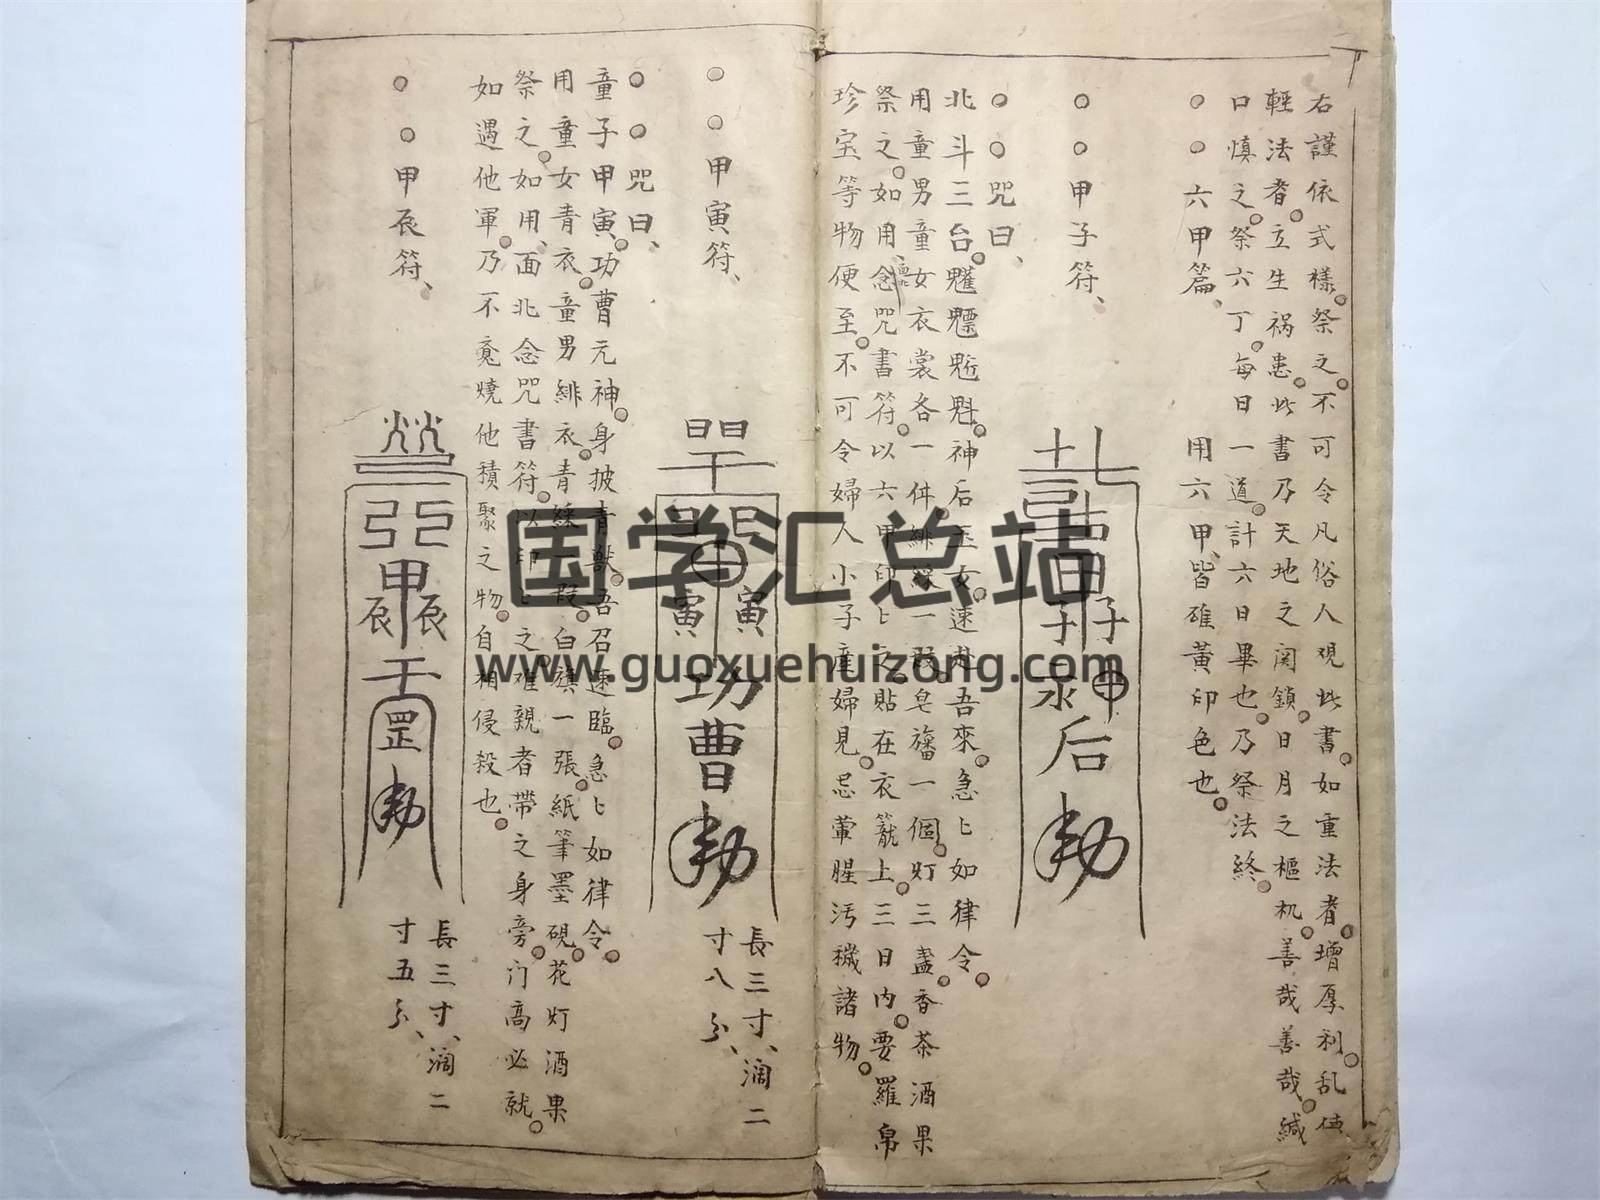 右謹依式樣祭之不可令凡俗人观此書如重法者增厚利乱使
輕法者立生祸患此書乃天地之関鎖日月之樞机善哉善哉緘
口慎之祭六丁每日一道計六日畢也乃祭法終
六甲篇、用六甲、皆雄黃印色也
甲子符、
咒曰、
北斗三台魓魒魁神后玉女速赴吾來急匕如律令
用童男童女衣裳各一件緋綵一段皂旛一個灯三盏香茶酒果
祭之如用念咒書符以六甲印匕之貼在衣籠上三日内要羅帛
珍宝等物便至不可令婦人小子産婦見忌葷腥污穢諸物
子
子
甲
后
勅
甲寅符、
咒曰、
童子甲寅功曹元神身披青獸吾召速臨急匕如律令
用童女青衣童男緋衣青綵一段白旗一張紙筆墨硯花灯酒果
祭之如用、面北念咒書符以印匕之难親者帶之身旁门高必就
如遇他軍乃不竟燒他積聚之物自相侵殺也
寅
寅
功
曹
勅
長三寸、濶二
寸八分、
甲辰符、
甲
辰
辰
罡
勅
長三寸、濶二
寸五分、
国学汇总站
www.guoxuehuizong.com